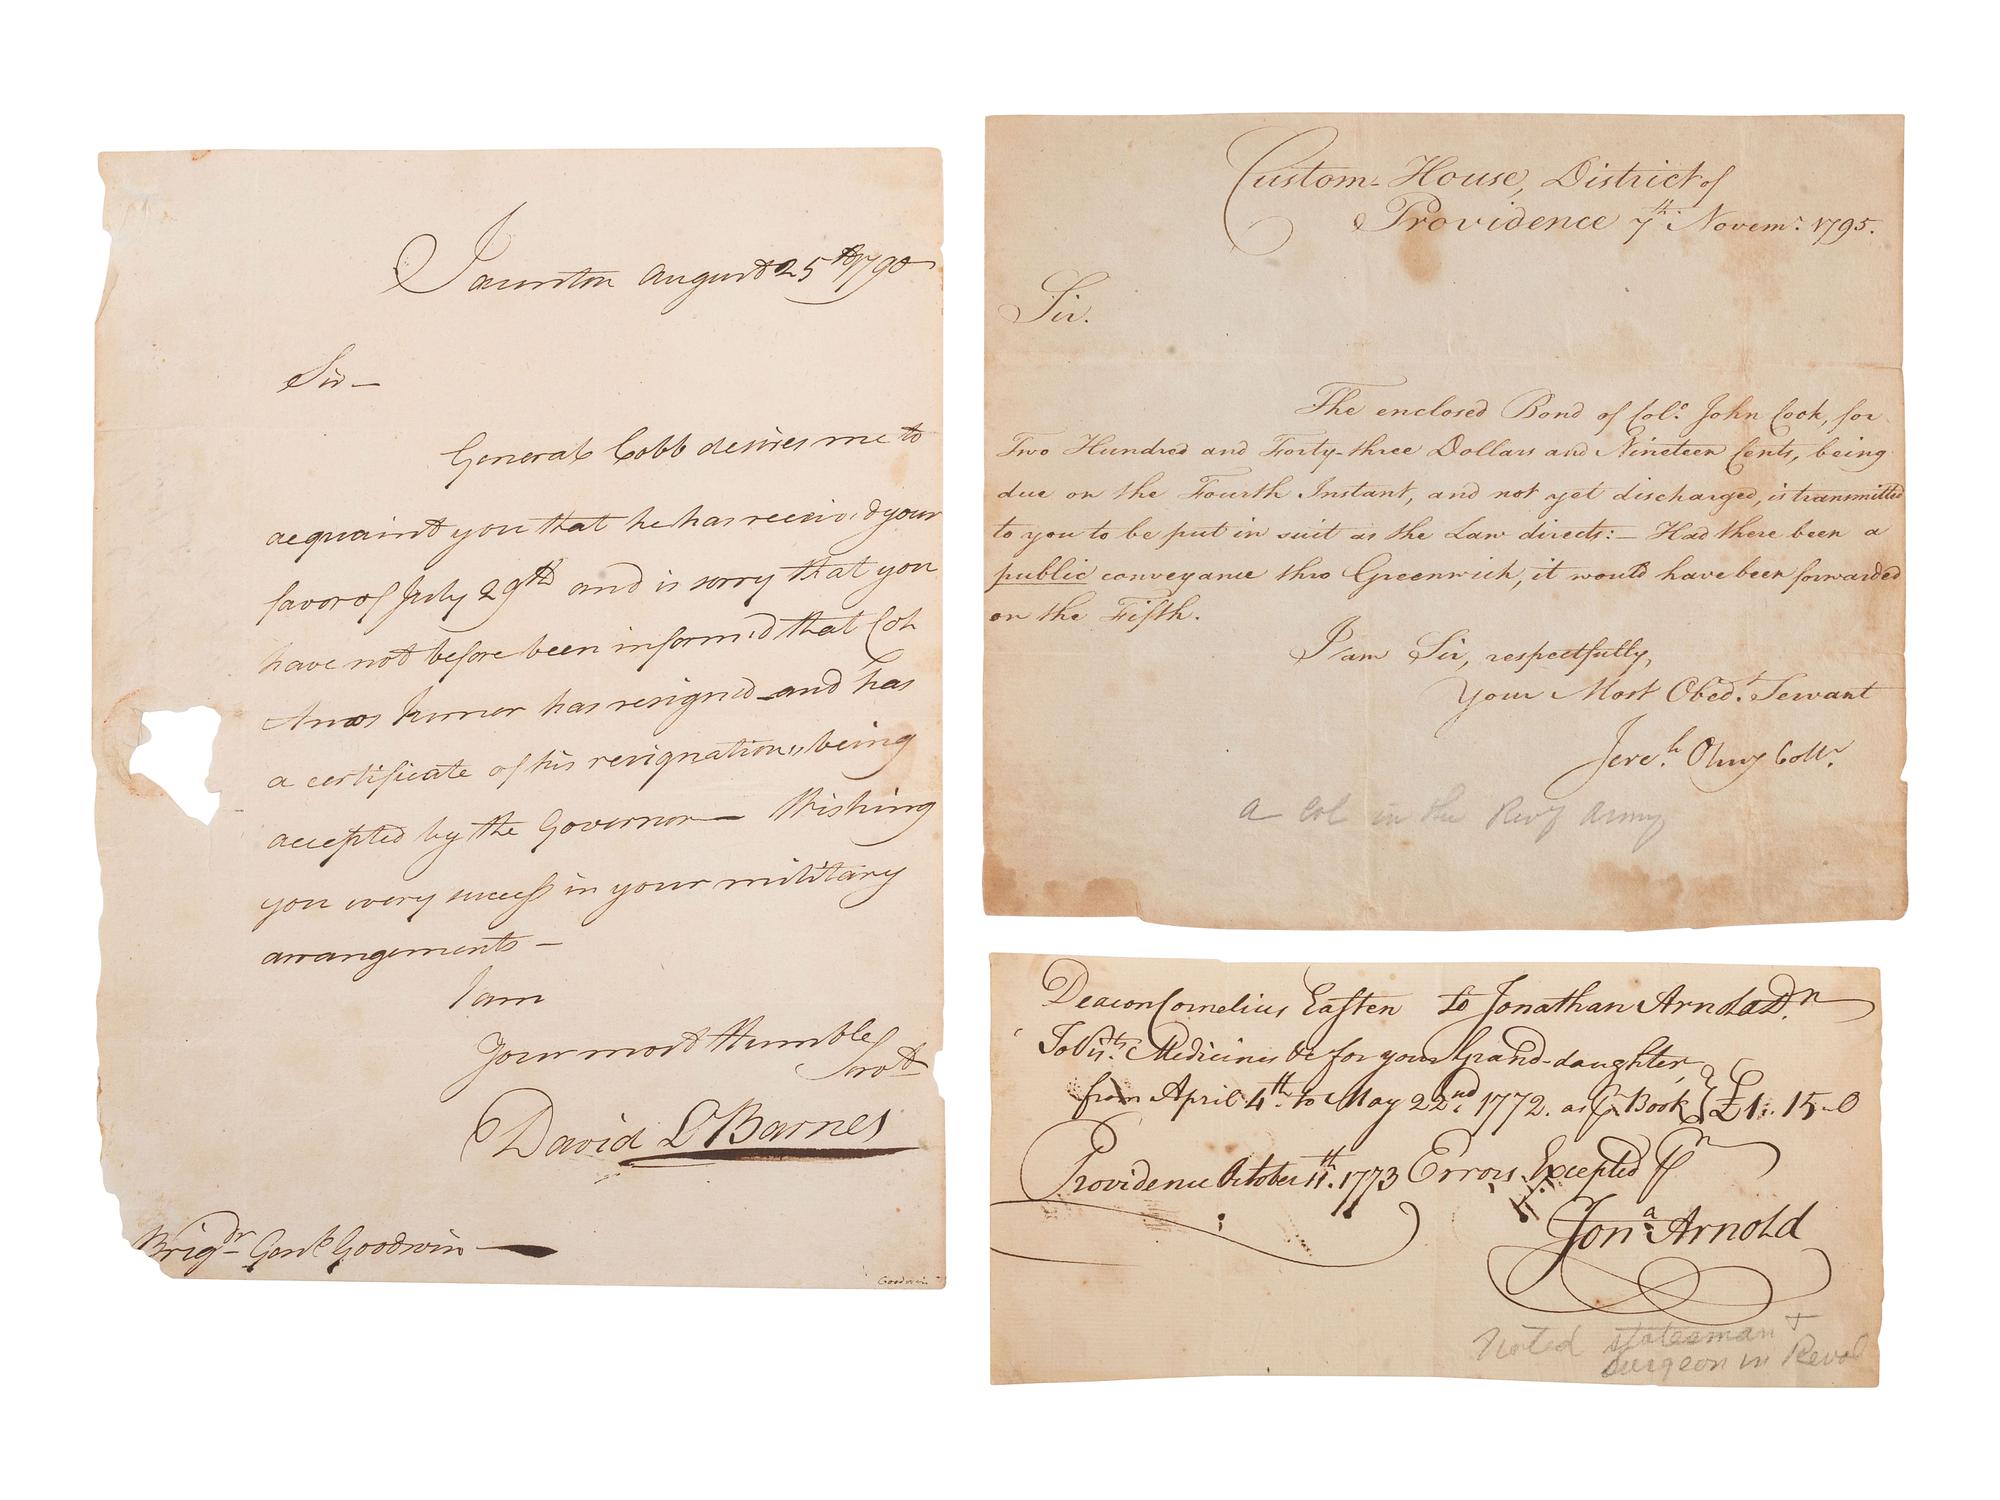 Taunton August 25th 1790
Sir —
General Cobb desires me to
acquaint you that he has received your
favor of July 29th and is sorry that you
have not before been informed that Col.
Amos Turner has resigned and has
a certificate of his resignation, being
accepted by the Governor — Wishing
you every success in your military
arrangements —
I am
Your most Humble
Servt
David L Barnes
Brigdr Genl Goodwin —
Goodwin
Custom-House, District of
Providence 7th Novemr. 1795.
Sir.
The enclosed Bond of Colo. John Cook, for
Two Hundred and Forty-three Dollars and Nineteen Cents, being
due on the Fourth Instant, and not yet discharged, is transmitted
to you to be put in suit as the Law directs:— Had there been a
public conveyance thro Greenwich, it would have been forwarded
on the Fifth.
I am Sir, respectfully,
Your Most Obedt. Servant
Jereh. Olney Collr.
a Col in the Rev army
Deacon Cornelius Easten to Jonathan Arnold Dr.
To Visits Medicines &c for your Grand-daughter,
from April 4th. to May 22nd. 1772. as Book } £1: 15-0
Providence October 11th. 1773 Errors Excepted
Jona. Arnold
Noted statesman +
surgeon in Revol